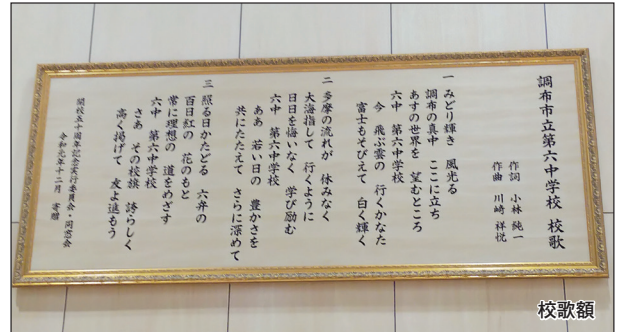 調布市立第六中学校 校歌
作詞 小林 純一
作曲 川崎 祥悦
一 みどり輝き 風光る
調布の真中 ここに立ち
あすの世界を 望むところ
六中 第六中学校
今 飛ぶ雲の 行くかなた
富士もそびえて 白く輝く
二 多摩の流れが 休みなく
大海指して 行くように
日日を悔いなく 学び励む
六中 第六中学校
ああ 若い日の 豊かさを
共にたたえて さらに深めて
三 照る日かたどる 六弁の
百日紅の 花のもと
常に理想の 道をめざす
六中 第六中学校
さあ その校旗 誇らしく
高く掲げて 友よ進もう
開校五十周年記念実行委員会・同窓会
令和元年十二月 寄贈
校歌額